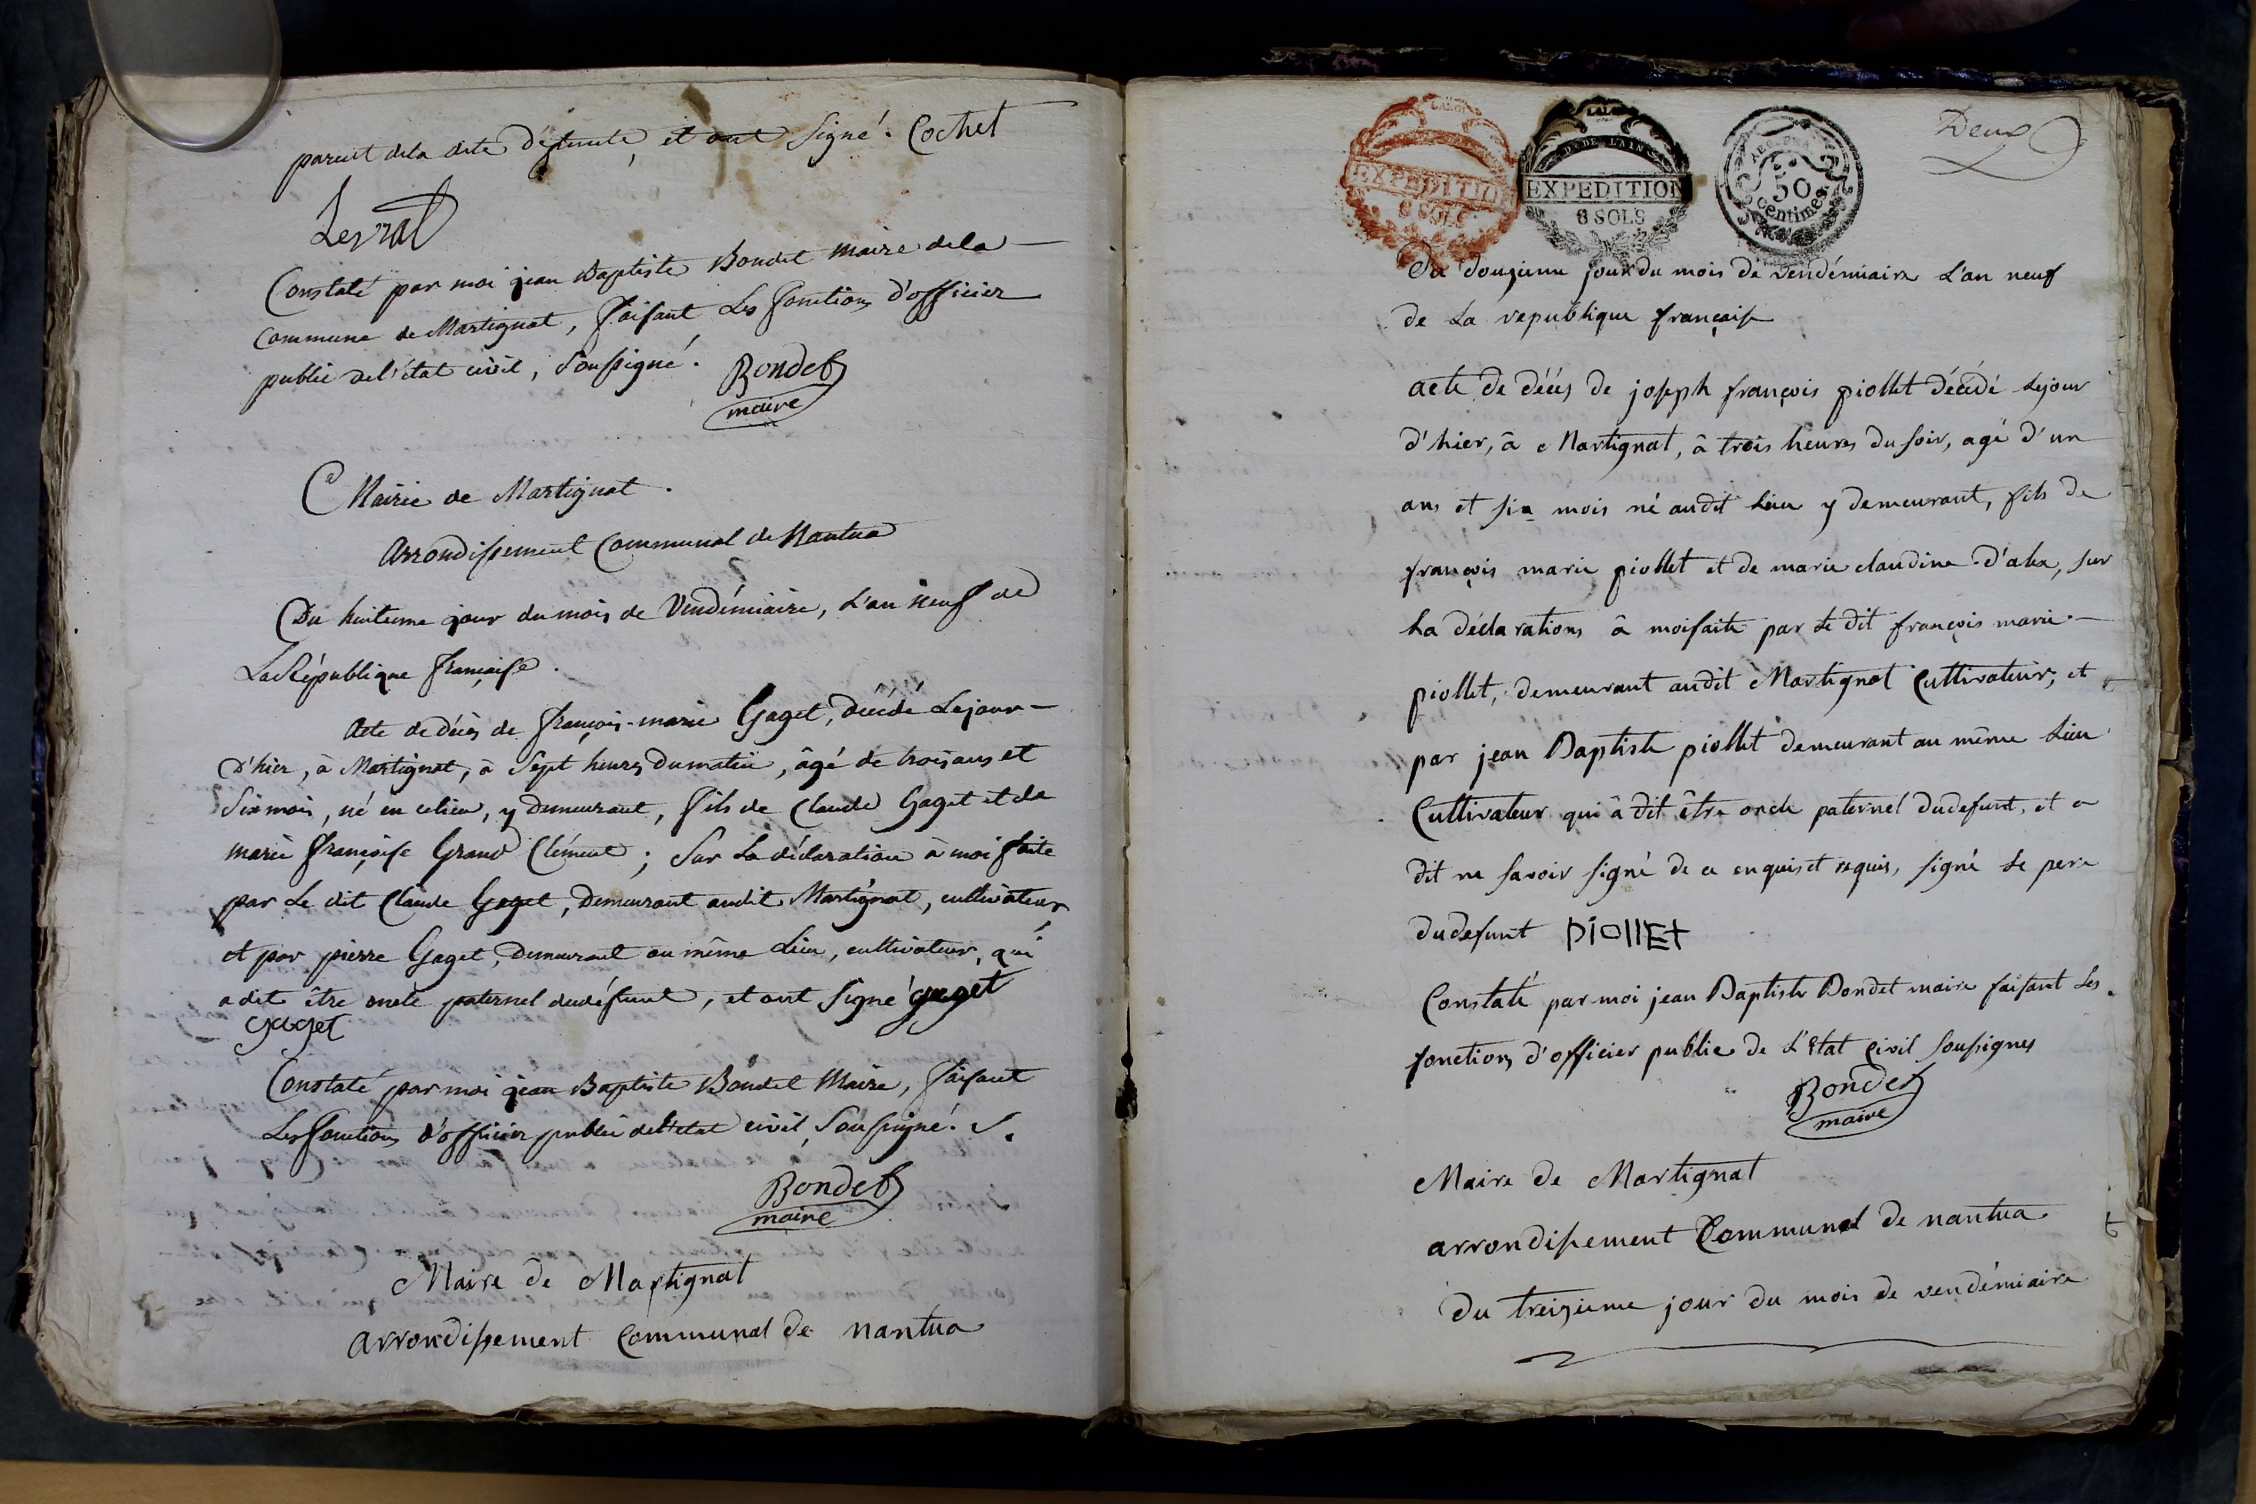 parent dela dite défunte, et ont signé. Cochet
Levrat
Constaté par moi jean Baptiste Bondet maire dela
Commune de Martignat, faisant Les fonctions d'officier
public del'état civil, soussigné.
Bondet
maire
Mairie de Martignat.
Arrondissement Communal de Nantua
Du huitieme jour du mois de Vendémiaire, L'an neuf de
La République française.
Acte de décès de françois-marie Gaget, décédé Lejour
D'hier, à Martignat, à Sept heures Dumatin, âgé de trois ans et
Six mois, né en celieu, y Demeurant, fils de Claude Gaget et de
marie françoise Grand Clément; Sur La déclaration à moi faite
par Le dit Claude Gaget, Demeurant audit Martignat, cultivateur
et par pierre Gaget, Demeurant au même Lieu, cultivateur, qui
a dit être oncle paternel dudéfunt, et ont signé gaget
gaget
Constaté par moi jean Baptiste Bondet Maire, faisant
Les fonctions d'officier public del'etat civil, Soussigné.
Bondet
maire
Maire de Martignat
arrondissement Communal de nantua
Deux
D. DE L'AIN
EXPEDITION
6 SOLS
D. DE L'AIN
EXPEDITION
6 SOLS
50
Centimes
Du douzieme jour du mois de vendémiaire L'an neuf
de La republique française
acte de décés de joseph françois piollet décédé Lejour
d'hier, â Martignat, â trois heures du soir, agé d'un
ans et six mois né audit Lieu y demeurant, fils de
françois marie piollet et de marie claudine d'alex, sur
La déclarations â moifaite par Le dit françois marie
piollet, demeurant audit Martignat Cultivateur, et
par jean Baptiste piollet demeurant au même Lieu
Cultivateur qui â dit être oncle paternel dudefunt, et a
dit ne savoir signé de ce enquis et requis, signé Le pere
dudefunt PiOllEt
Constaté par moi jean Baptiste Bondet maire faisant Les
fonctions d'officier public de L'Etat Civil soussignes
Bondet
maire
Maire de Martignat
arrondissement Communal de nantua
du treizieme jour du mois de vendémiaire